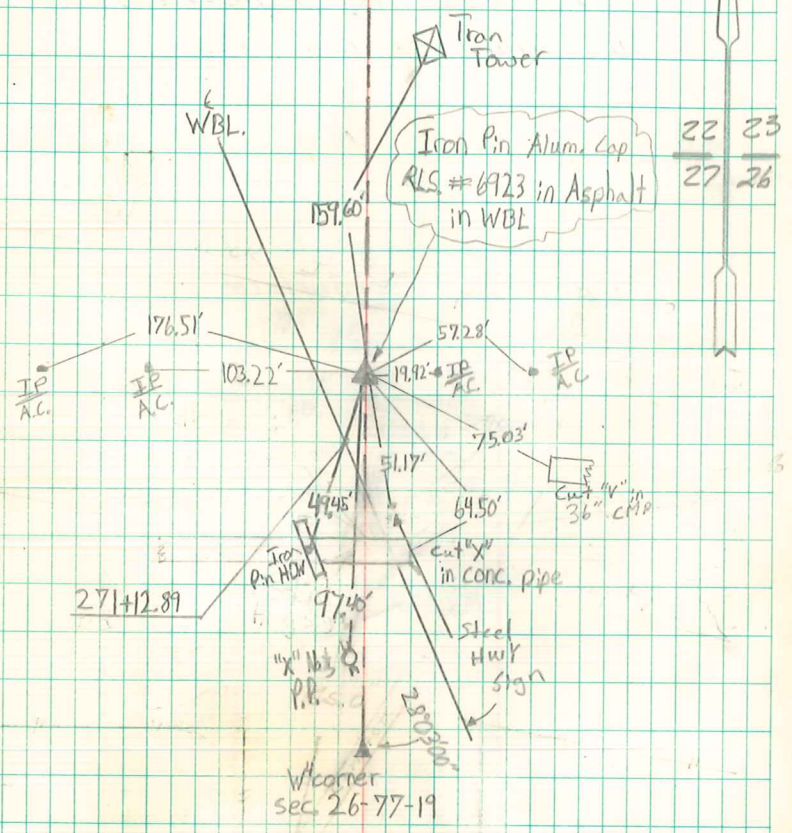 Tran
Tower
℄
WBL.
Iron Pin Alum. Cap
RLS. #6923 in Asphalt
in WBL
22 23
27 26
159.60'
176.51'
57.28'
103.22'
19.92'
IP
A.C.
IP
A.C.
IP
A.C.
IP
A.C.
75.03'
51.17'
Cut "V" in
36" CMP
49.45'
64.50'
Iron
Pin HDW
cut "X"
in conc. pipe
271+12.89
97.40'
Steel
HwY
Sign
"X"
P.P.
28°03'00"
W¼ corner
sec. 26-77-19